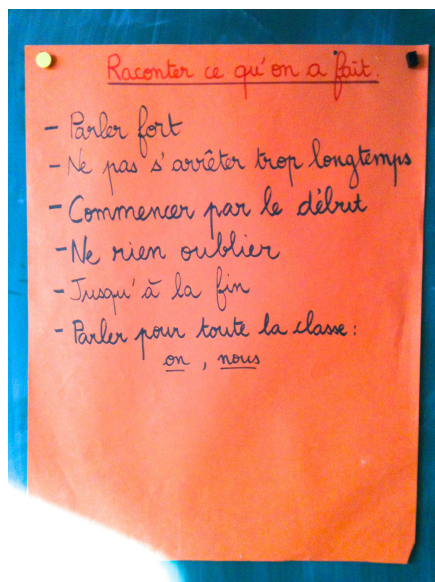 Raconter ce qu'on a fait.
- Parler fort
- Ne pas s'arrêter trop longtemps
- Commencer par le début
- Ne rien oublier
- Jusqu'à la fin
- Parler pour toute la classe :
on, nous